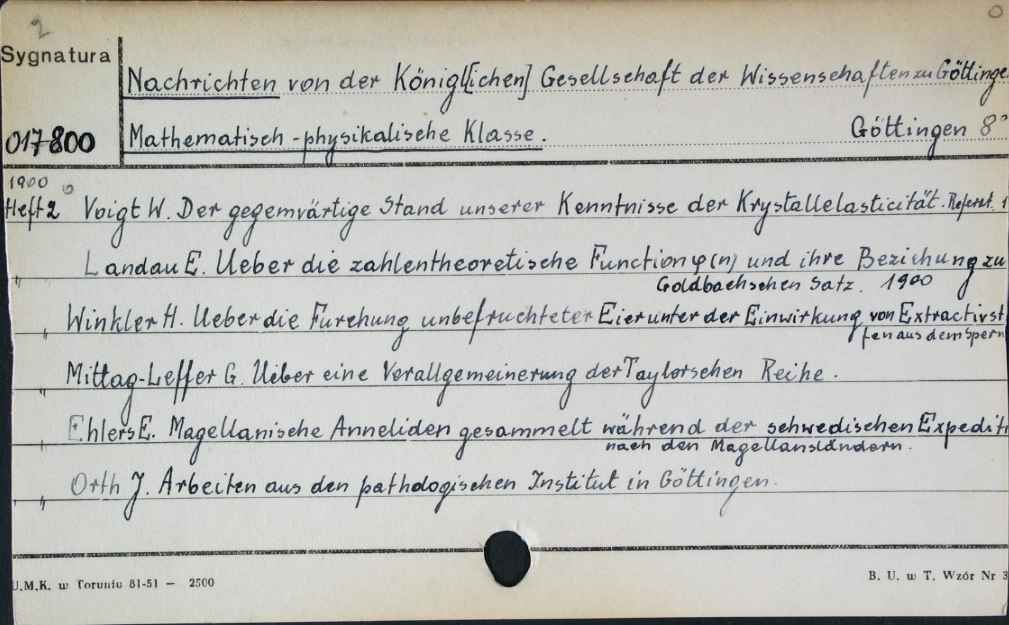 2 0
Sygnatura
Nachrichten von der Königl[ichen] Gesellschaft der Wissenschaften zu Göttinge
017800 Mathematisch-physikalische Klasse. Göttingen 8°
1900
Heft 2 Voigt W. Der gegenwärtige Stand unserer Kenntnisse der Krystallelasticität. Referat. 1
" Landau E. Ueber die zahlentheoretische Function φ(n) und ihre Beziehung zu
Goldbachschen Satz. 1900
" Winkler H. Ueber die Furchung unbefruchteter Eier unter der Einwirkung von Extractivst
fen aus dem Sperm
" Mittag-Leffer G. Ueber eine Verallgemeinerung der Taylorschen Reihe.
" Ehlers E. Magellanische Anneliden gesammelt während der schwedischen Expediti
nach den Magellansländern.
" Orth J. Arbeiten aus den pathologischen Institut in Göttingen.
U.M.K. w Toruniu 81-51 — 2500 B. U. w T. Wzór Nr 3